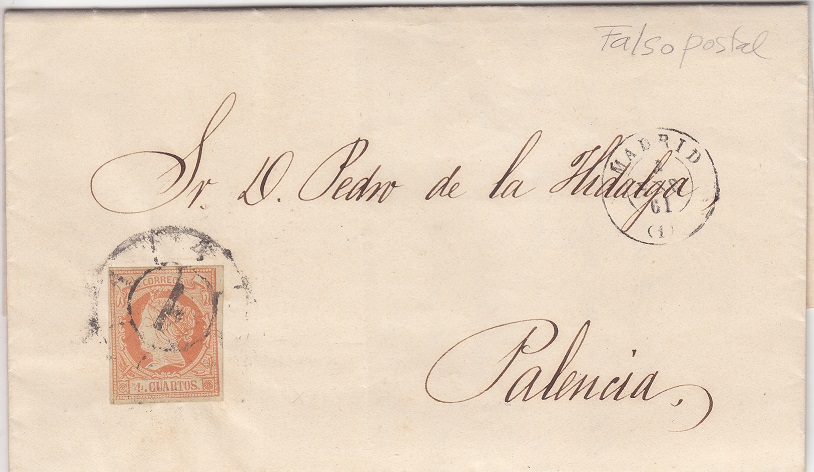 Falso postal
MADRID
61
(1)
Sr. D. Pedro de la Hidalga
CORREOS
4 CUARTOS.
Palencia,